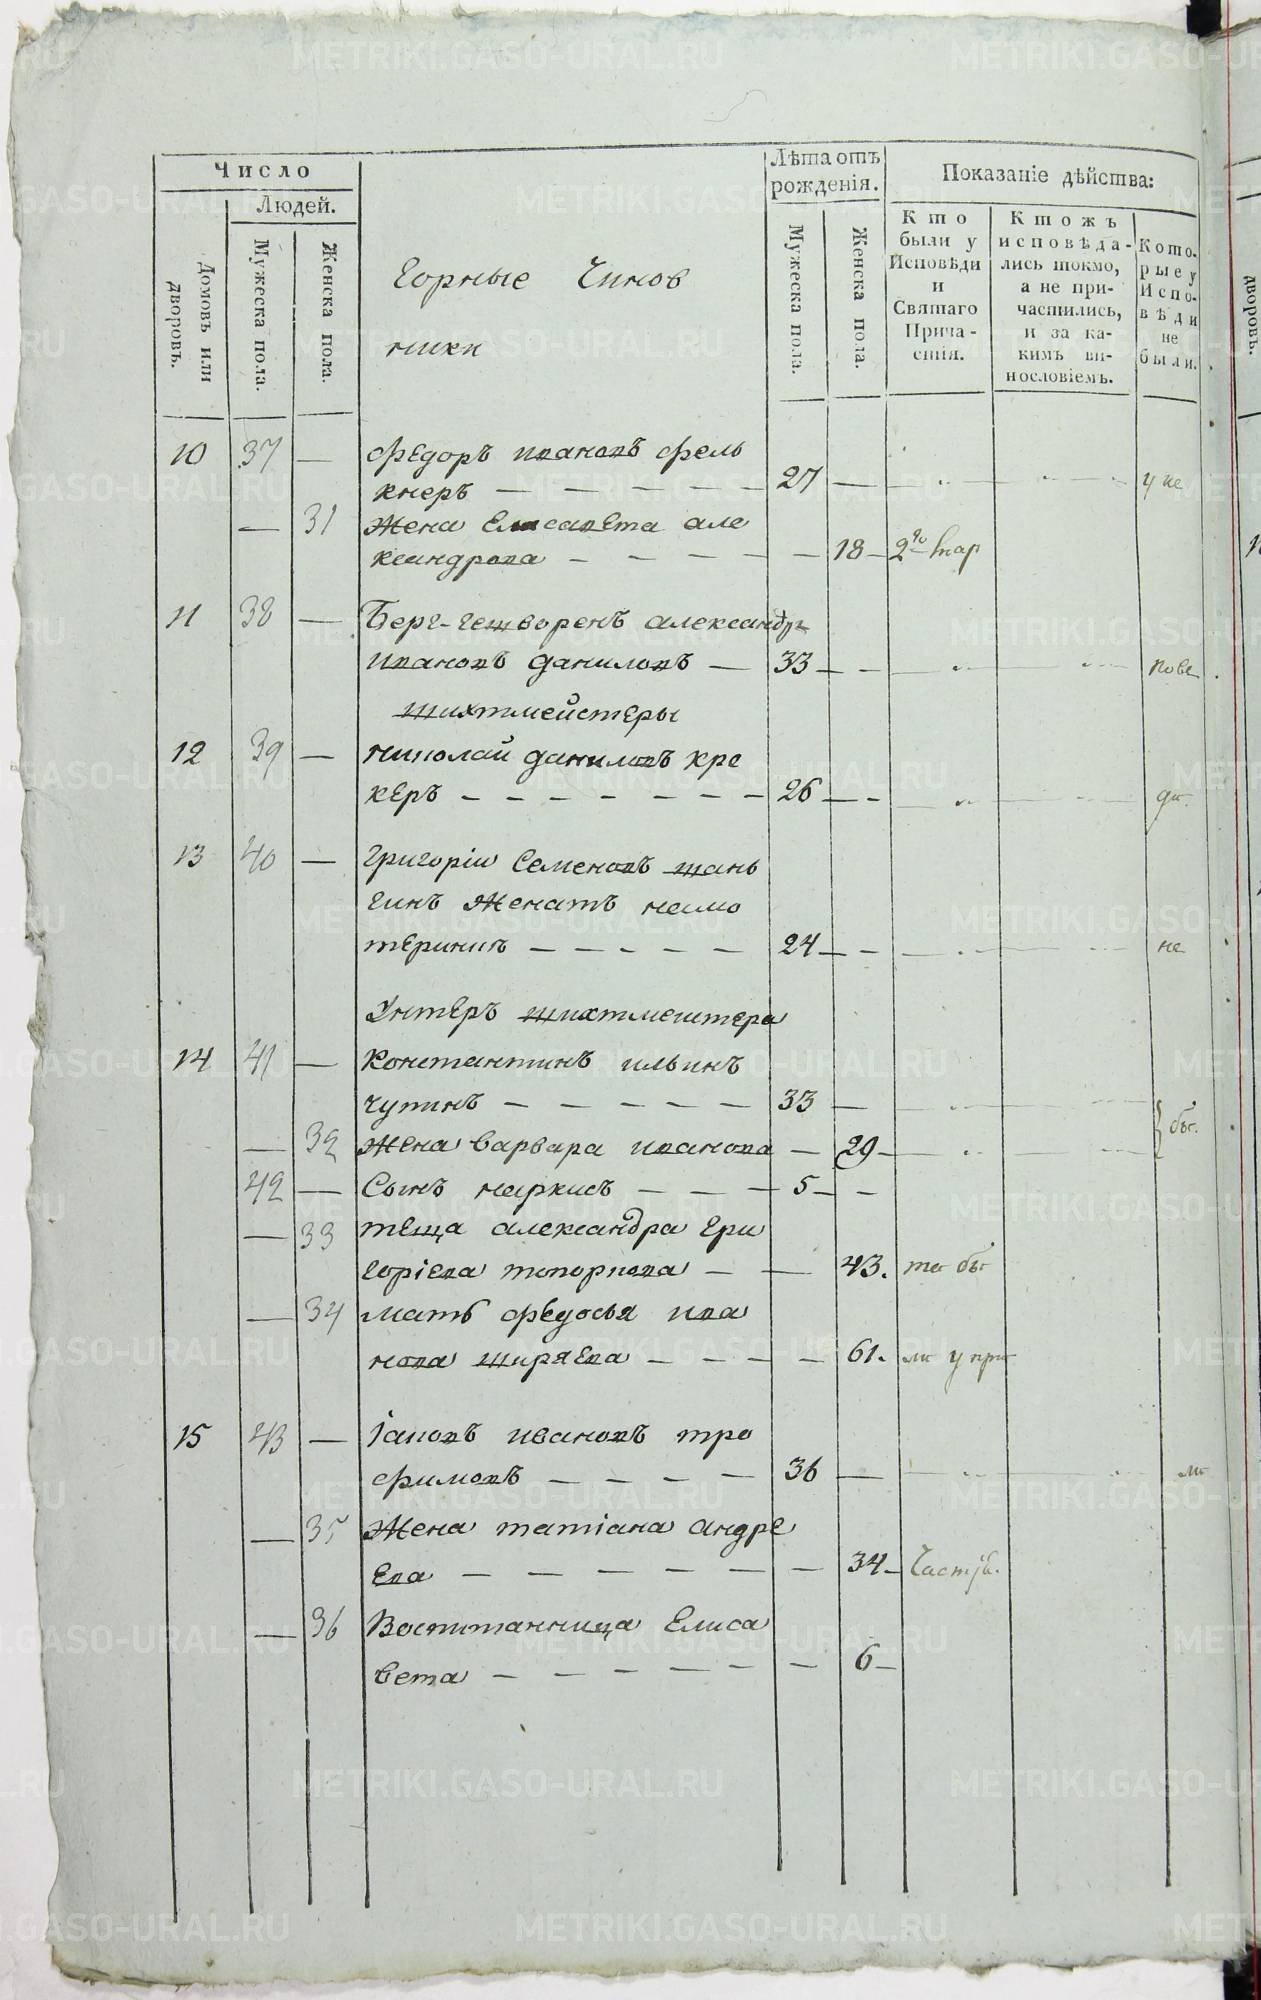 Число
Людей.
Домовъ или дворовъ.
Мужеска пола.
Женска пола.
Горные Чинов
ники
Лѣта отъ
рожденія.
Мужеска пола.
Женска пола.
Показаніе дѣйства:
Кто
были у
Исповѣди
и
Святаго
Прича-
стія.
Ктожъ
исповѣда-
лись токмо,
а не при-
частились,
и за ка-
кимъ ви-
нословіемъ.
Кото-
рые у
Испо-
вѣди
не
были.
10 37 — Федоръ Ивановъ Фель
кнеръ — — — — — — 27 — у не
— 31 Жена Елисавета Але
ксандрова — — — — — 18 — 2го мар
11 38 — Берг-гешворенъ Александръ
Ивановъ Даниловъ — 33 — — пове
Шихтмейстеры
12 39 — Николай Даниловъ Кре
керъ — — — — — — — 26 — — ди
13 40 — Григоріи Семеновъ Шань
гинъ Женатъ неимо
теринин — — — — — 24 — — не
Унтеръ шихтмештера
14 41 — Константинъ Ильинъ
Чупинъ — — — — — — 33 —
— 32 Жена Варвара Иванова — 29 — бы.
42 — Сынъ Наркисъ — — — 5 — —
— 33 Теща Александра Гри
горіева Топоркова — — 43. та бы
— 34 Мать Федосья Ива
нова Ширяева — — — — 61. ли у при
15 43 — Іаковъ Ивановъ Тро
фимовъ — — — — — 36 — ли
— 35 Жена Татіана Андре
ева — — — — — — 34 —
— 36 Воспитанница Елиса
вета — — — — — — — 6 —
METRIKI.GASO-URAL.RU